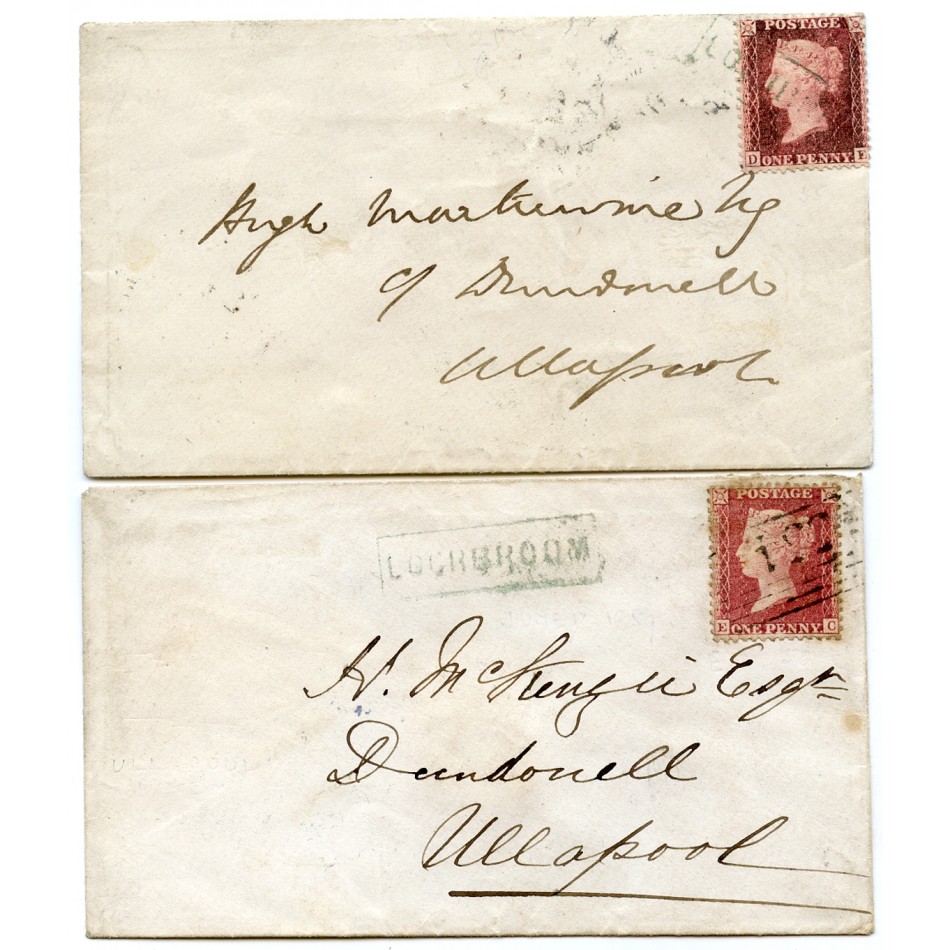 POSTAGE
D ONE PENNY E
Hugh
of Dundonell
Ullapool
POSTAGE
E ONE PENNY C
LOCHBROOM
H. McKenzie Esqr
Dundonell
Ullapool